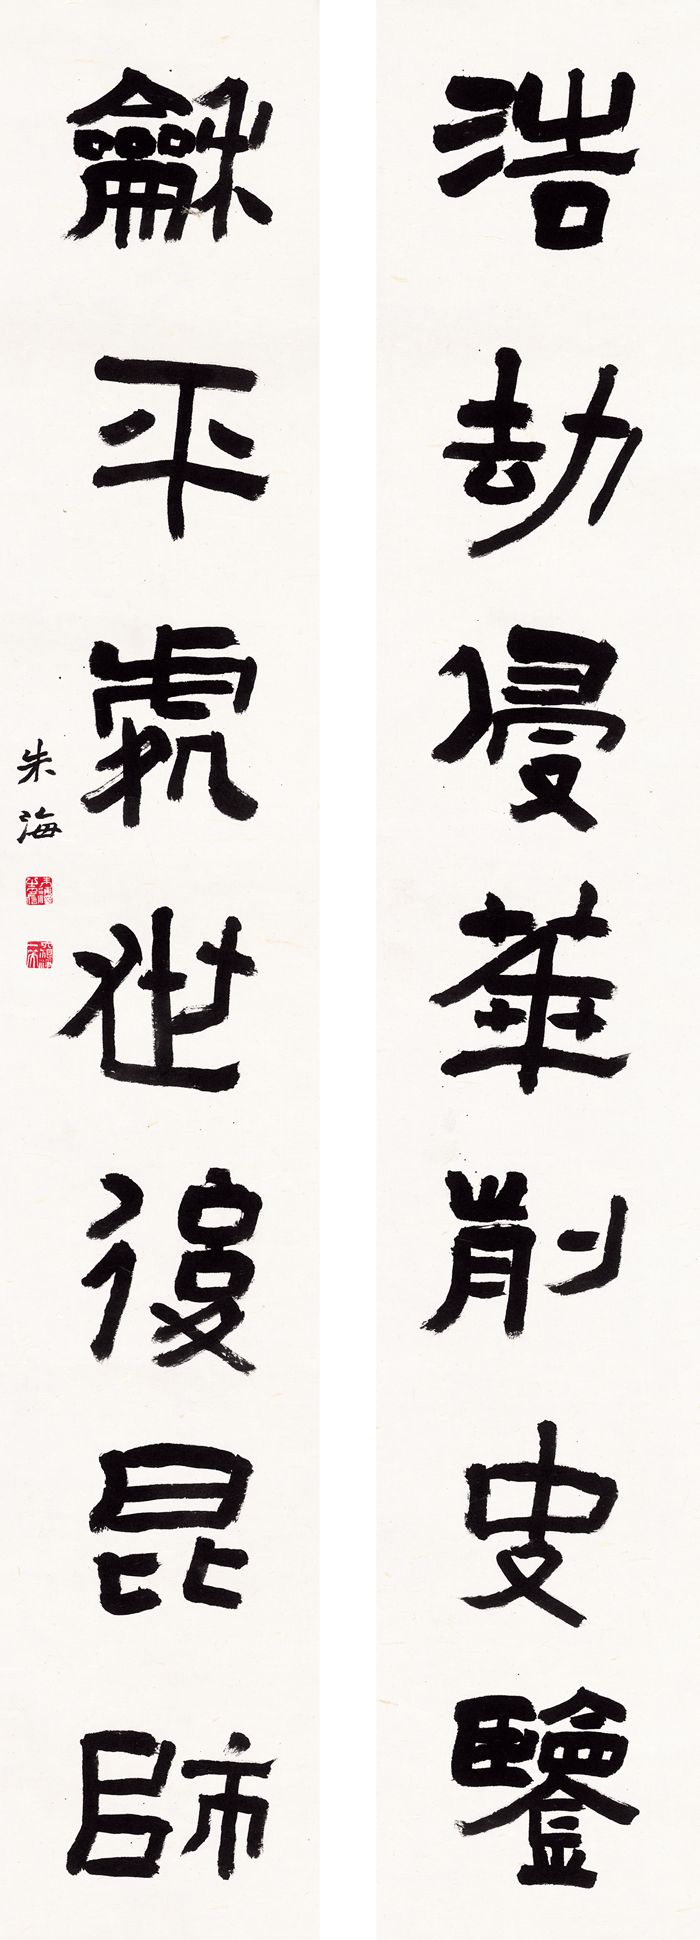 浩劫侵華削史鑒
龢平處世後昆師
朱海